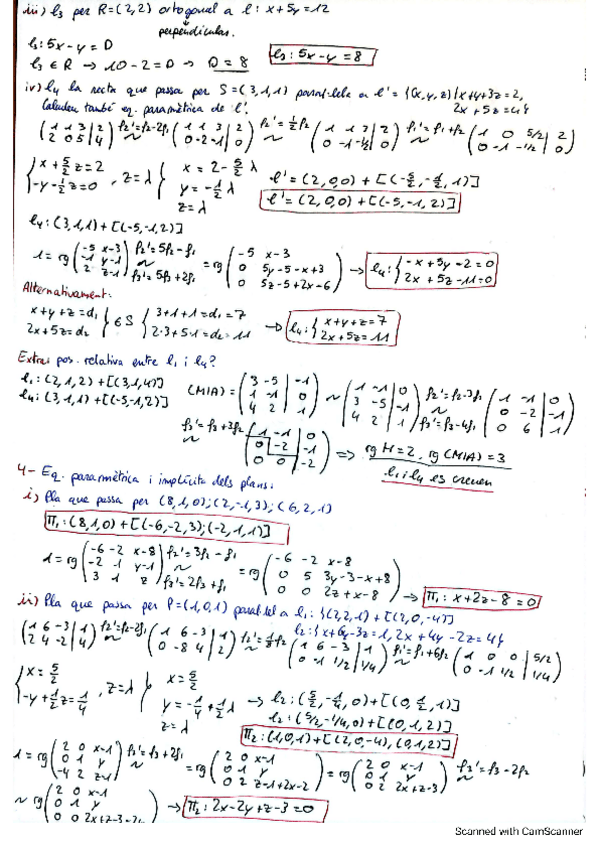 iii) l₃ per R=(2,2) ortogonal a l: x+5y=12
perpendicular.
l₃: 5x-y=D
l₃ ∈ R → 10-2=D → D=8
l₃: 5x-y=8
iv) l₄ la recta que passa per S=(3,1,1) paral·lela a l'={(x,y,z)|x+y+3z=2,
2x+5z=4}
Calculeu també eq. paramètrica de l'.
(1 1 3 | 2; 2 0 5 | 4) f₂'=f₂-2f₁ ~ (1 1 3 | 2; 0 -2 -1 | 0) f₂'=½f₂ ~ (1 1 3 | 2; 0 -1 -1/2 | 0) f₁'=f₁+f₂ ~ (1 0 5/2 | 2; 0 -1 -1/2 | 0)
{x+5/2z=2; -y-1/2z=0, z=λ {x=2-5/2λ; y=-1/2λ; z=λ
l'=(2,0,0)+[(-5/2,-1/2,1)]
l'=(2,0,0)+[(-5,-1,2)]
l₄: (3,1,1)+[(-5,-1,2)]
1=rg(-5 x-3; -1 y-1; 2 z-1) f₂'=5f₂-f₁ ~ f₃'=5f₃+2f₁ =rg(-5 x-3; 0 5y-5-x+3; 0 5z-5+2x-6) → l₄: {-x+5y-2=0; 2x+5z-11=0
Alternativament:
x+y+z=d₁; 2x+5z=d₂} ∈ S {3+1+1=d₁=7; 2·3+5·1=d₂=11 → l₄: {x+y+z=7; 2x+5z=11
Extra: pos. relativa entre l₁ i l₄?
l₁: (2,1,2)+[(3,1,4)]
l₄: (3,1,1)+[(-5,-1,2)]
(M|A)=(3 -5 | -1; 1 -1 | 0; 4 2 | 1) ~ (1 -1 | 0; 3 -5 | -1; 4 2 | 1) f₂'=f₂-3f₁ ~ f₃'=f₃-4f₁ (1 -1 | 0; 0 -2 | -1; 0 6 | 1)
f₃'=f₃+3f₂ ~ (1 -1 | 0; 0 -2 | -1; 0 0 | -2) => rg M=2, rg(M|A)=3
l₁ i l₄ es creuen
4- Eq. paramètrica i implícita dels plans:
i) Pla que passa per (8,1,0); (2,-1,3); (6,2,1)
π₁: (8,1,0)+[(-6,-2,3);(-2,1,1)]
1=rg(-6 -2 x-8; -2 1 y-1; 3 1 z) f₂'=3f₂-f₁ ~ f₃'=2f₃+f₁ =rg(-6 -2 x-8; 0 5 3y-3-x+8; 0 0 2z+x-8) → π₁: x+2z-8=0
ii) Pla que passa per P=(1,0,1) paral·lel a l₁: {(2,2,1)+[(2,0,-4)]
l₂: {x+6y-3z=1, 2x+4y-2z=4}
(1 6 -3 | 1; 2 4 -2 | 4) f₂'=f₂-2f₁ ~ (1 6 -3 | 1; 0 -8 4 | 2) f₂'=1/8f₂ ~ (1 6 -3 | 1; 0 -1 1/2 | 1/4) f₁'=f₁+6f₂ ~ (1 0 0 | 5/2; 0 -1 1/2 | 1/4)
{x=5/2; -y+1/2z=1/4, z=λ {x=5/2; y=-1/4+1/2λ; z=λ
→ l₂: (5/2,-1/4,0)+[(0,1/2,1)]
l₂: (5/2,-1/4,0)+[(0,1,2)]
π₂: (1,0,1)+[(2,0,-4),(0,1,2)]
1=rg(2 0 x-1; 0 1 y; -4 2 z-1) f₃'=f₃+2f₁ ~ =rg(2 0 x-1; 0 1 y; 0 2 z-1+2x-2) =rg(2 0 x-1; 0 1 y; 0 2 2x+z-3) f₃'=f₃-2f₂
~ rg(2 0 x-1; 0 1 y; 0 0 2x+z-3-2y) → π₂: 2x-2y+z-3=0
Scanned with CamScanner